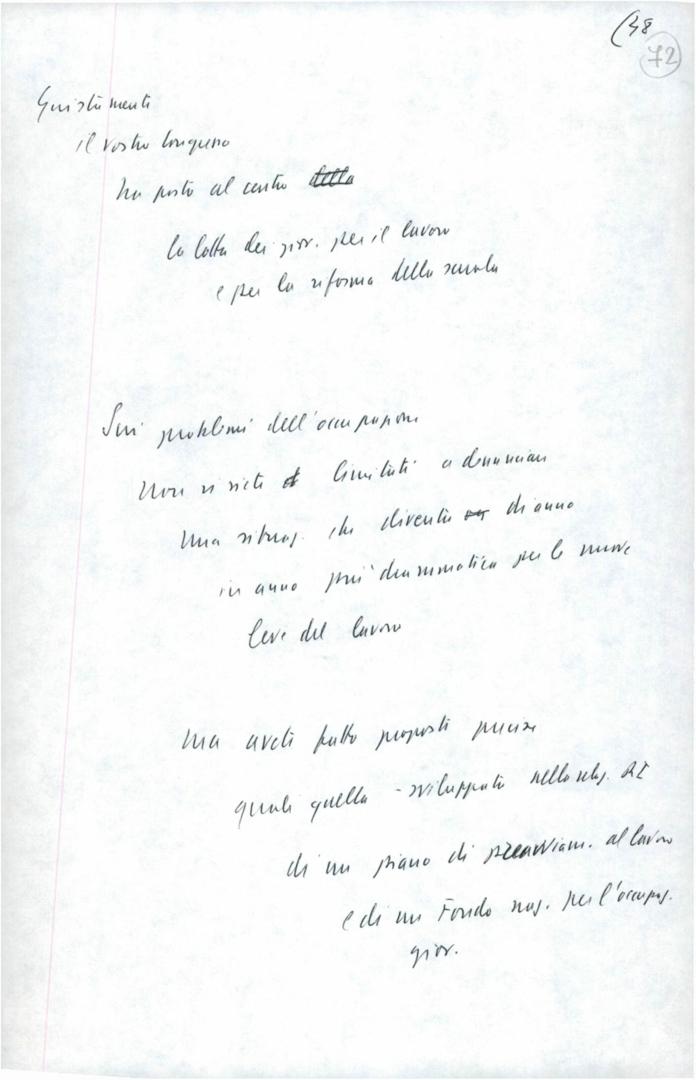 (48
72
Giustamente
il vostro congresso
ha posto al centro della
la lotta dei giov. per il lavoro
e per la riforma della scuola
Sui problemi dell'occupazione
Non vi siete limitati a denunciare
una situaz. che diventa di anno
in anno più drammatica per le nuove
leve del lavoro
ma avete fatto proposte precise
quali quella - sviluppata nella relaz.
di un piano di preavviam. al lavoro
e di un Fondo naz. per l'occupaz.
giov.